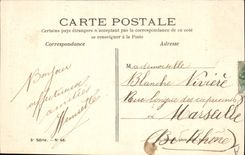 CARTE POSTALE
Certains pays étrangers n'acceptent pas la correspondance de ce côté
se renseigner à la Poste
Correspondance
Adresse
Bonjour
affectueux
amitiés
Mademoiselle
Blanche Rivière
Rue longue des capucins
à Marseille
Bs Rhône
5e Série. - N° 64